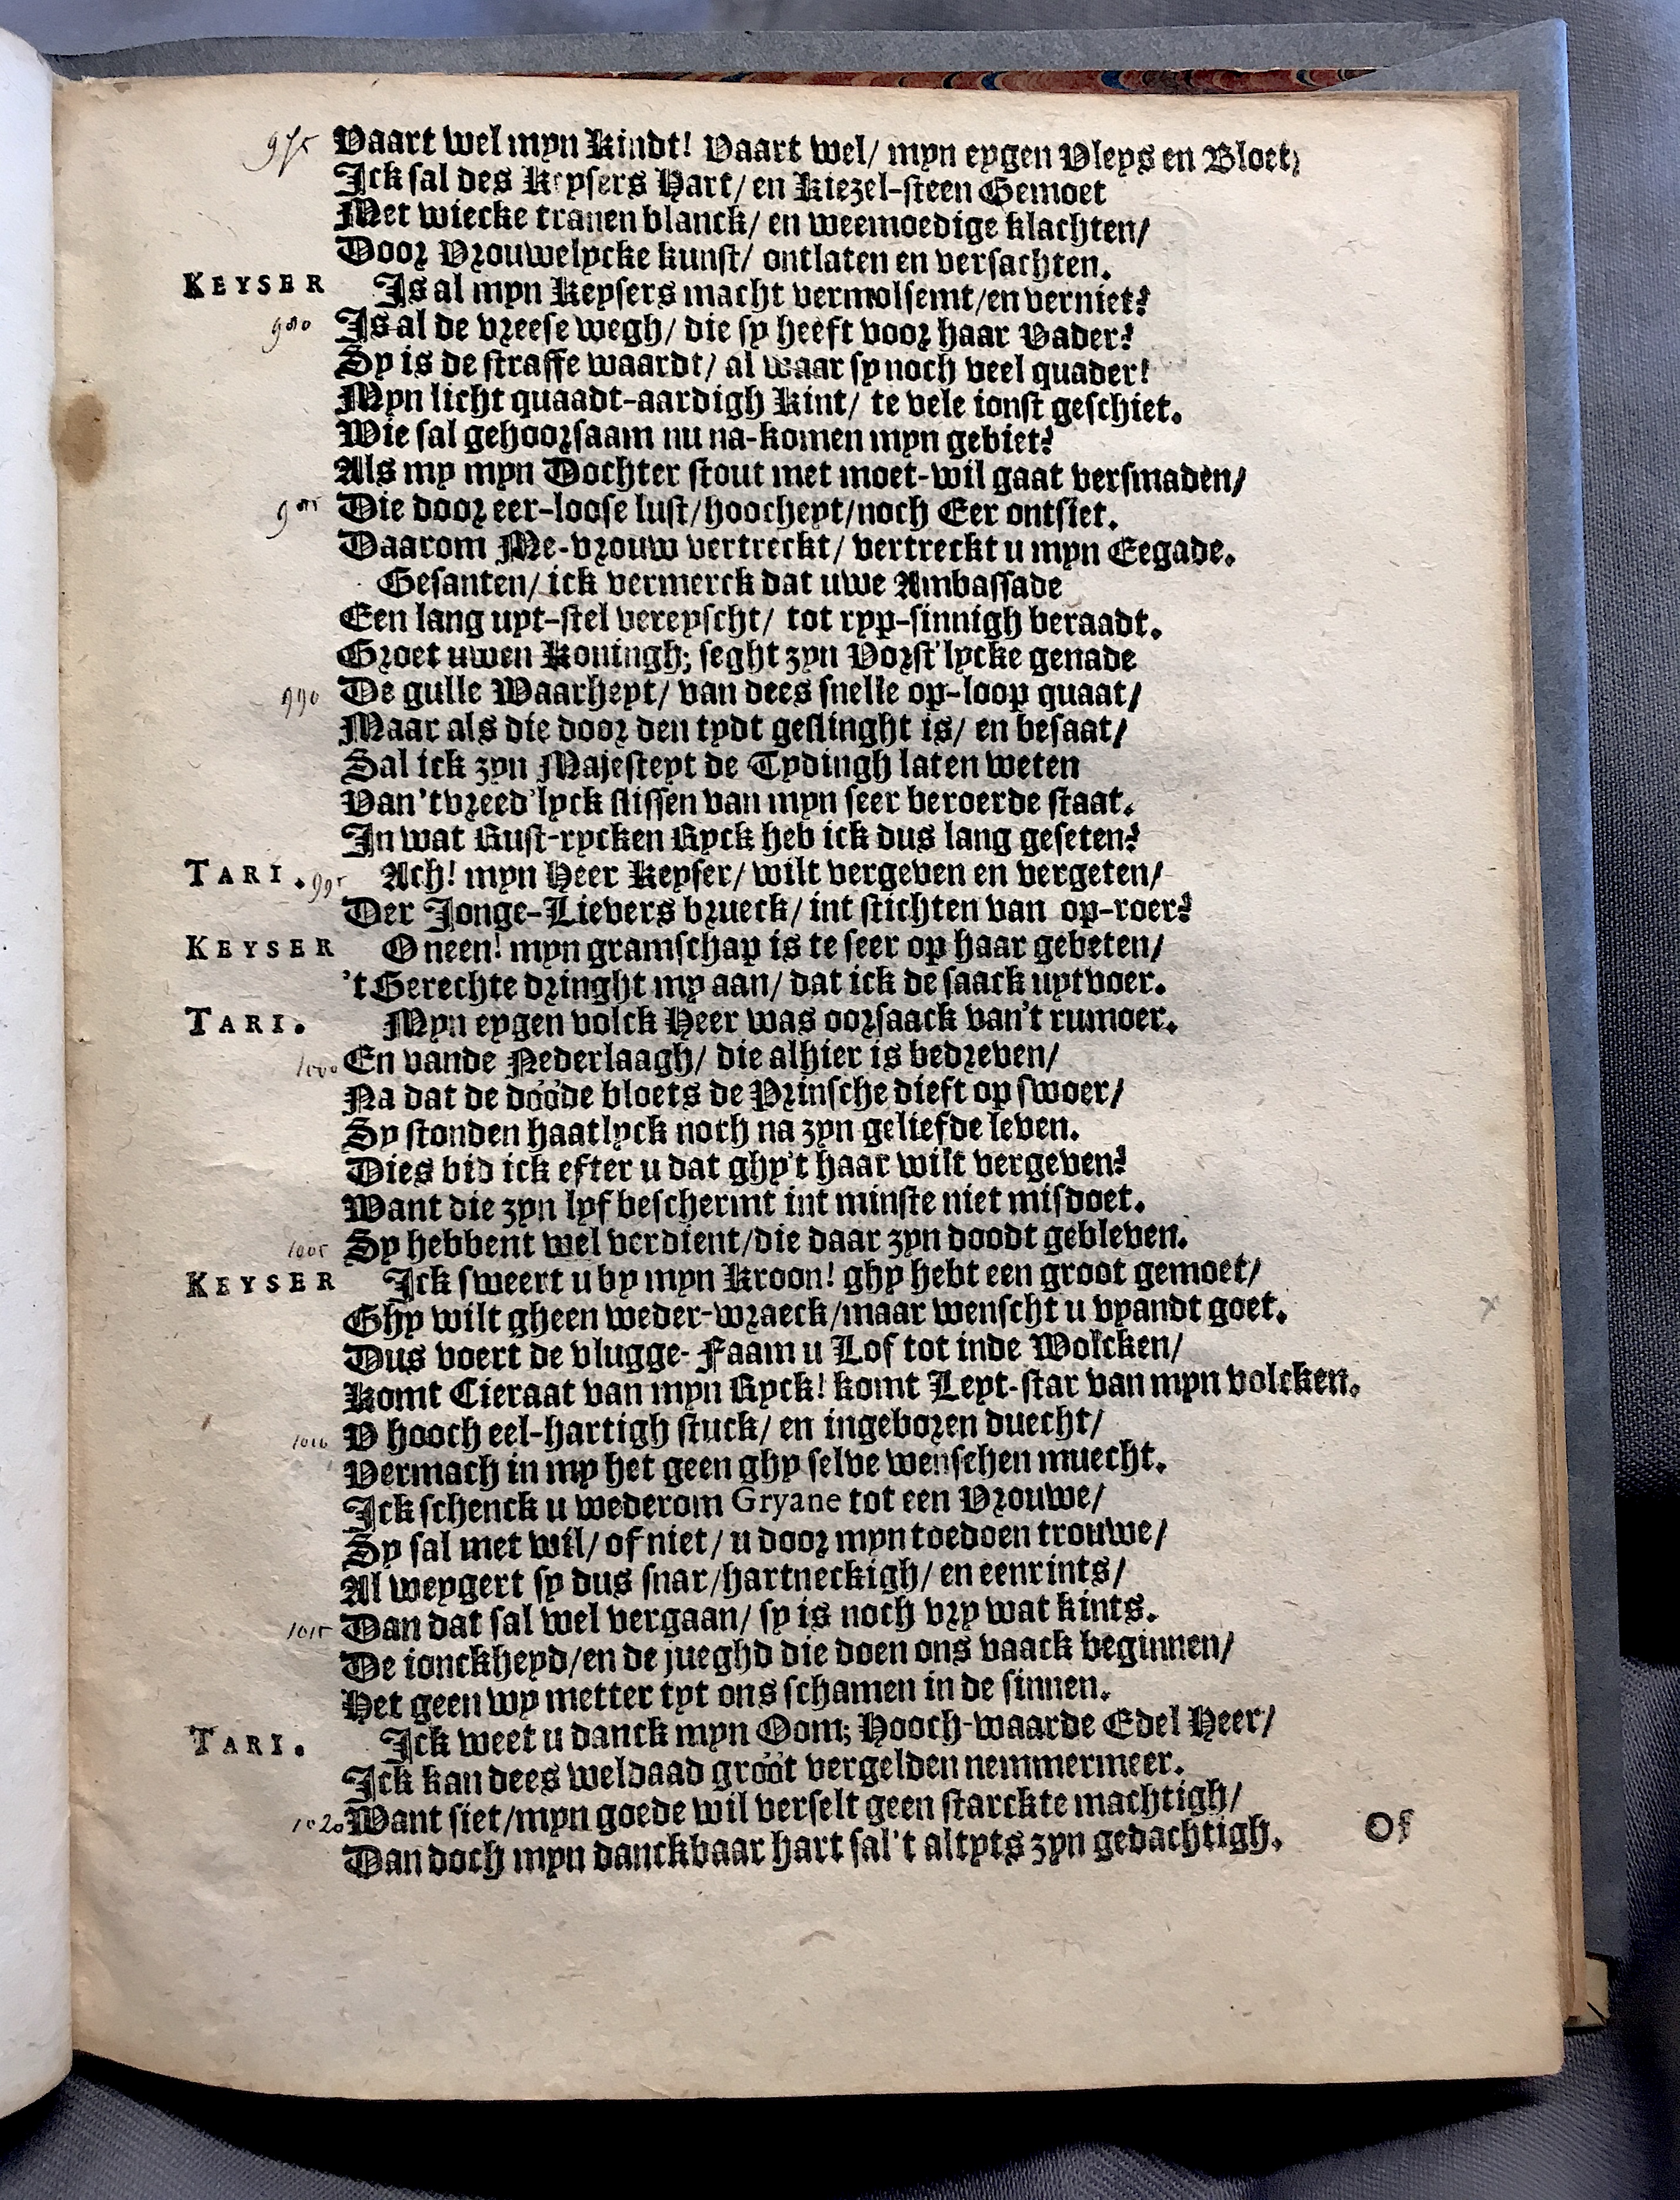 975 Vaart wel myn Kindt! Vaart wel/ myn eygen Vleys en Bloet/
Ick sal des Keysers Hart/ en Kiezel-steen Gemoet
Met wiecke tranen blanck/ en weemoedige klachten/
Door Vrouwelycke kunst/ ontlaten en versachten.
KEYSER Is al myn Keysers macht vermolsemt/en verniet?
980 Is al de vreese wegh/ die sy heeft voor haar Vader?
Sy is de straffe waardt/ al waar sy noch veel quader!
Myn licht quaadt-aardigh Kint/ te vele ionst geschiet.
Wie sal gehoorsaam nu na-komen myn gebiet?
Als my myn Dochter stout met moet-wil gaat versmaden/
985 Die door eer-loose lust/hoocheyt/noch Eer ontsiet.
Daarom Me-vrouw vertreckt/ vertreckt u myn Eegade.
Gesanten/ ick vermerck dat uwe Ambassade
Een lang uyt-stel vereyscht/ tot ryp-sinnigh beraadt.
Groet uwen Koningh; seght zyn Vorst'lycke genade
990 De gulle Waarheyt/ van dees snelle op-loop quaat/
Maar als die door den tydt geslinght is/ en besaat/
Sal ick zyn Majesteyt de Tydingh laten weten
Van 't vreed'lyck slissen van myn seer beroerde staat.
In wat Rust-rycken Ryck heb ick dus lang geseten?
TARI. 995 Ach! myn Heer Keyser/ wilt vergeven en vergeten/
Der Jonge-Lievers brueck/ int stichten van op-roer?
KEYSER O neen! myn gramschap is te seer op haar gebeten/
't Gerechte dringht my aan/ dat ick de saack uytvoer.
TARI. Myn eygen volck Heer was oorsaack van't rumoer.
1000 En vande Nederlaagh/ die alhier is bedreven/
Na dat de dööde bloets de Prinsche dieft op swoer/
Sy stonden haatlyck noch na zyn geliefde leven.
Dies bid ick efter u dat ghy't haar wilt vergeven?
Want die zyn lyf beschermt int minste niet misdoet.
1005 Sy hebbent wel verdient/die daar zyn doodt gebleven.
KEYSER Ick sweert u by myn Kroon! ghy hebt een groot gemoet/
Ghy wilt gheen weder-wraeck/maar wenscht u vyandt goet.
Dus voert de vlugge-Faam u Lof tot inde Wolcken/
Komt Cieraat van myn Ryck! komt Leyt-star van myn volcken.
1010 V hooch eel-hartigh stuck/ en ingeboren duecht/
Vermach in my het geen ghy selve wenschen muecht.
Ick schenck u wederom Gryane tot een Vrouwe/
Sy sal met wil/ of niet/ u door myn toedoen trouwe/
Al weygert sy dus snar/hartneckigh/ en eenrints/
1015 Dan dat sal wel vergaan/ sy is noch vry wat kints.
De ionckheyd/en de jueghd die doen ons vaack beginnen/
Het geen wy metter tyt ons schamen in de sinnen.
TARI. Ick weet u danck myn Oom; Hooch-waarde Edel Heer/
Ick kan dees weldaad grööt vergelden nemmermeer.
1020 Want siet/myn goede wil verselt geen starckte machtigh/
Dan doch myn danckbaar hart sal't altyts zyn gedachtigh.
Of